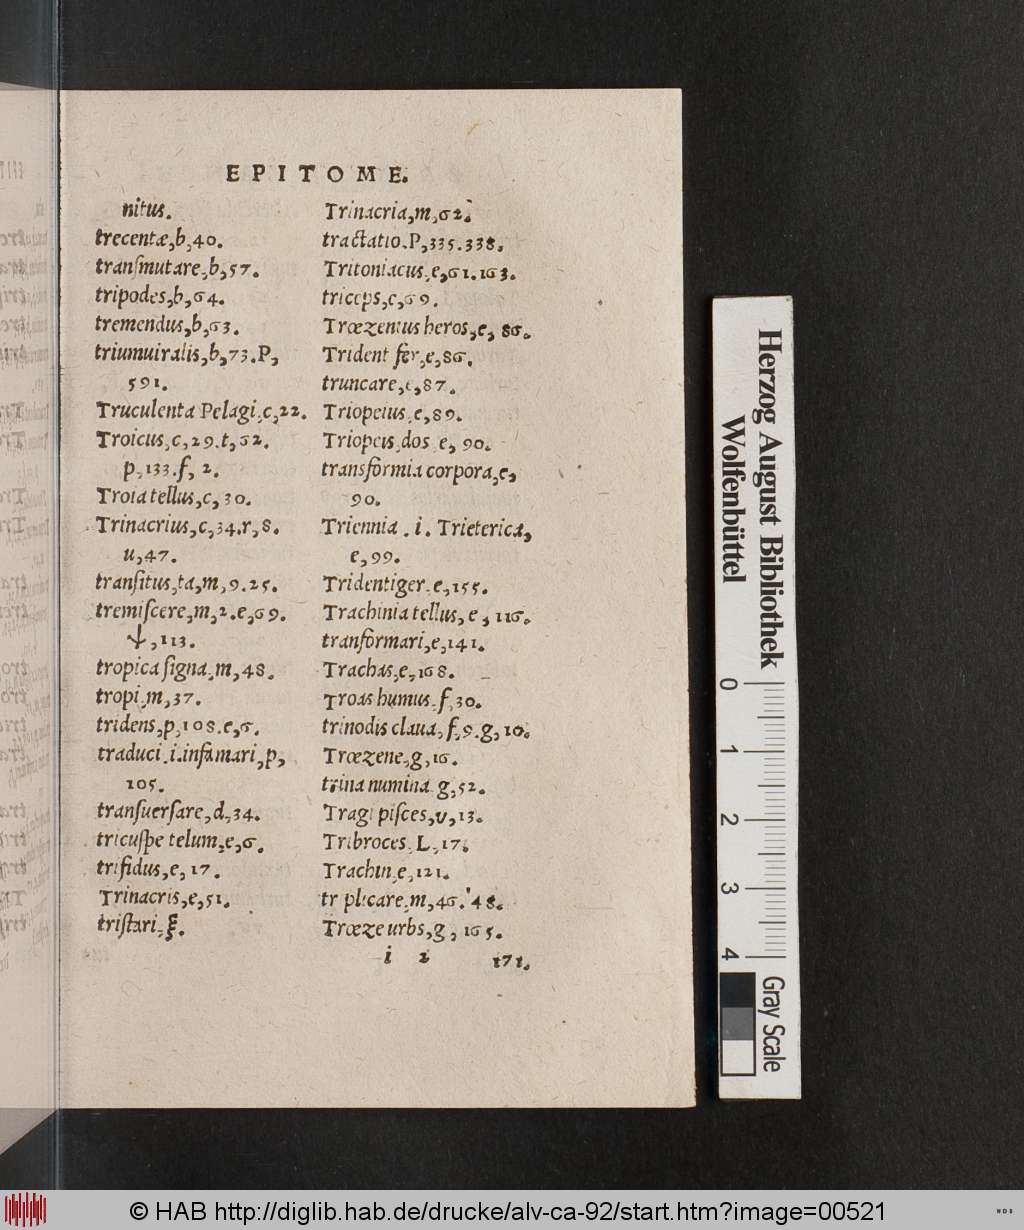 EPITOME.
nitus.
trecentæ,b,40.
tranſmutare,b,57.
tripodes,b,64.
tremendus,b,63.
triumuiralis,b,73.P,
591.
Truculenta Pelagi,c,22.
Troicus,c,29.t,62.
p,133.f, 2.
Troia tellus,c,30.
Trinacrius,c,34.r,8.
u,47.
tranſitus,ta,m,9.25.
tremiſcere,m,2.e,69.
ψ,113.
tropica ſigna,m,48.
tropi,m,37.
tridens,p,108.e,6.
traduci.i.infamari,p,
105.
tranſuerſare,d,34.
tricuſpe telum,e,6.
trifidus,e,17.
Trinacris,e,51.
triſtari,ξ.
Trinacria,m,62.
tractatio.P,335.338.
Tritoniacus,e,61.163.
triceps,c,69.
Trœzenius heros,e, 86.
Trident fer,e,86.
truncare,e,87.
Triopeius,e,89.
Triopeis dos e, 90.
transformia corpora,e,
90.
Triennia .i. Trieterica,
e,99.
Tridentiger.e,155.
Trachinia tellus, e,116.
tranſormari,e,141.
Trachas,e,168.
Troas humus.f,30.
trinodis claua, f,9.g,10.
Trœzene,g,16.
trina numina g,52.
Tragi piſces,υ,13.
Tribroces.L,17.
Trachin,e,121.
triplicare,m,46.48.
Trœze urbs,g, 165.
i 2 171.
Herzog August Bibliothek
Wolfenbüttel
0 1 2 3 4
Gray Scale
© HAB http://diglib.hab.de/drucke/alv-ca-92/start.htm?image=00521